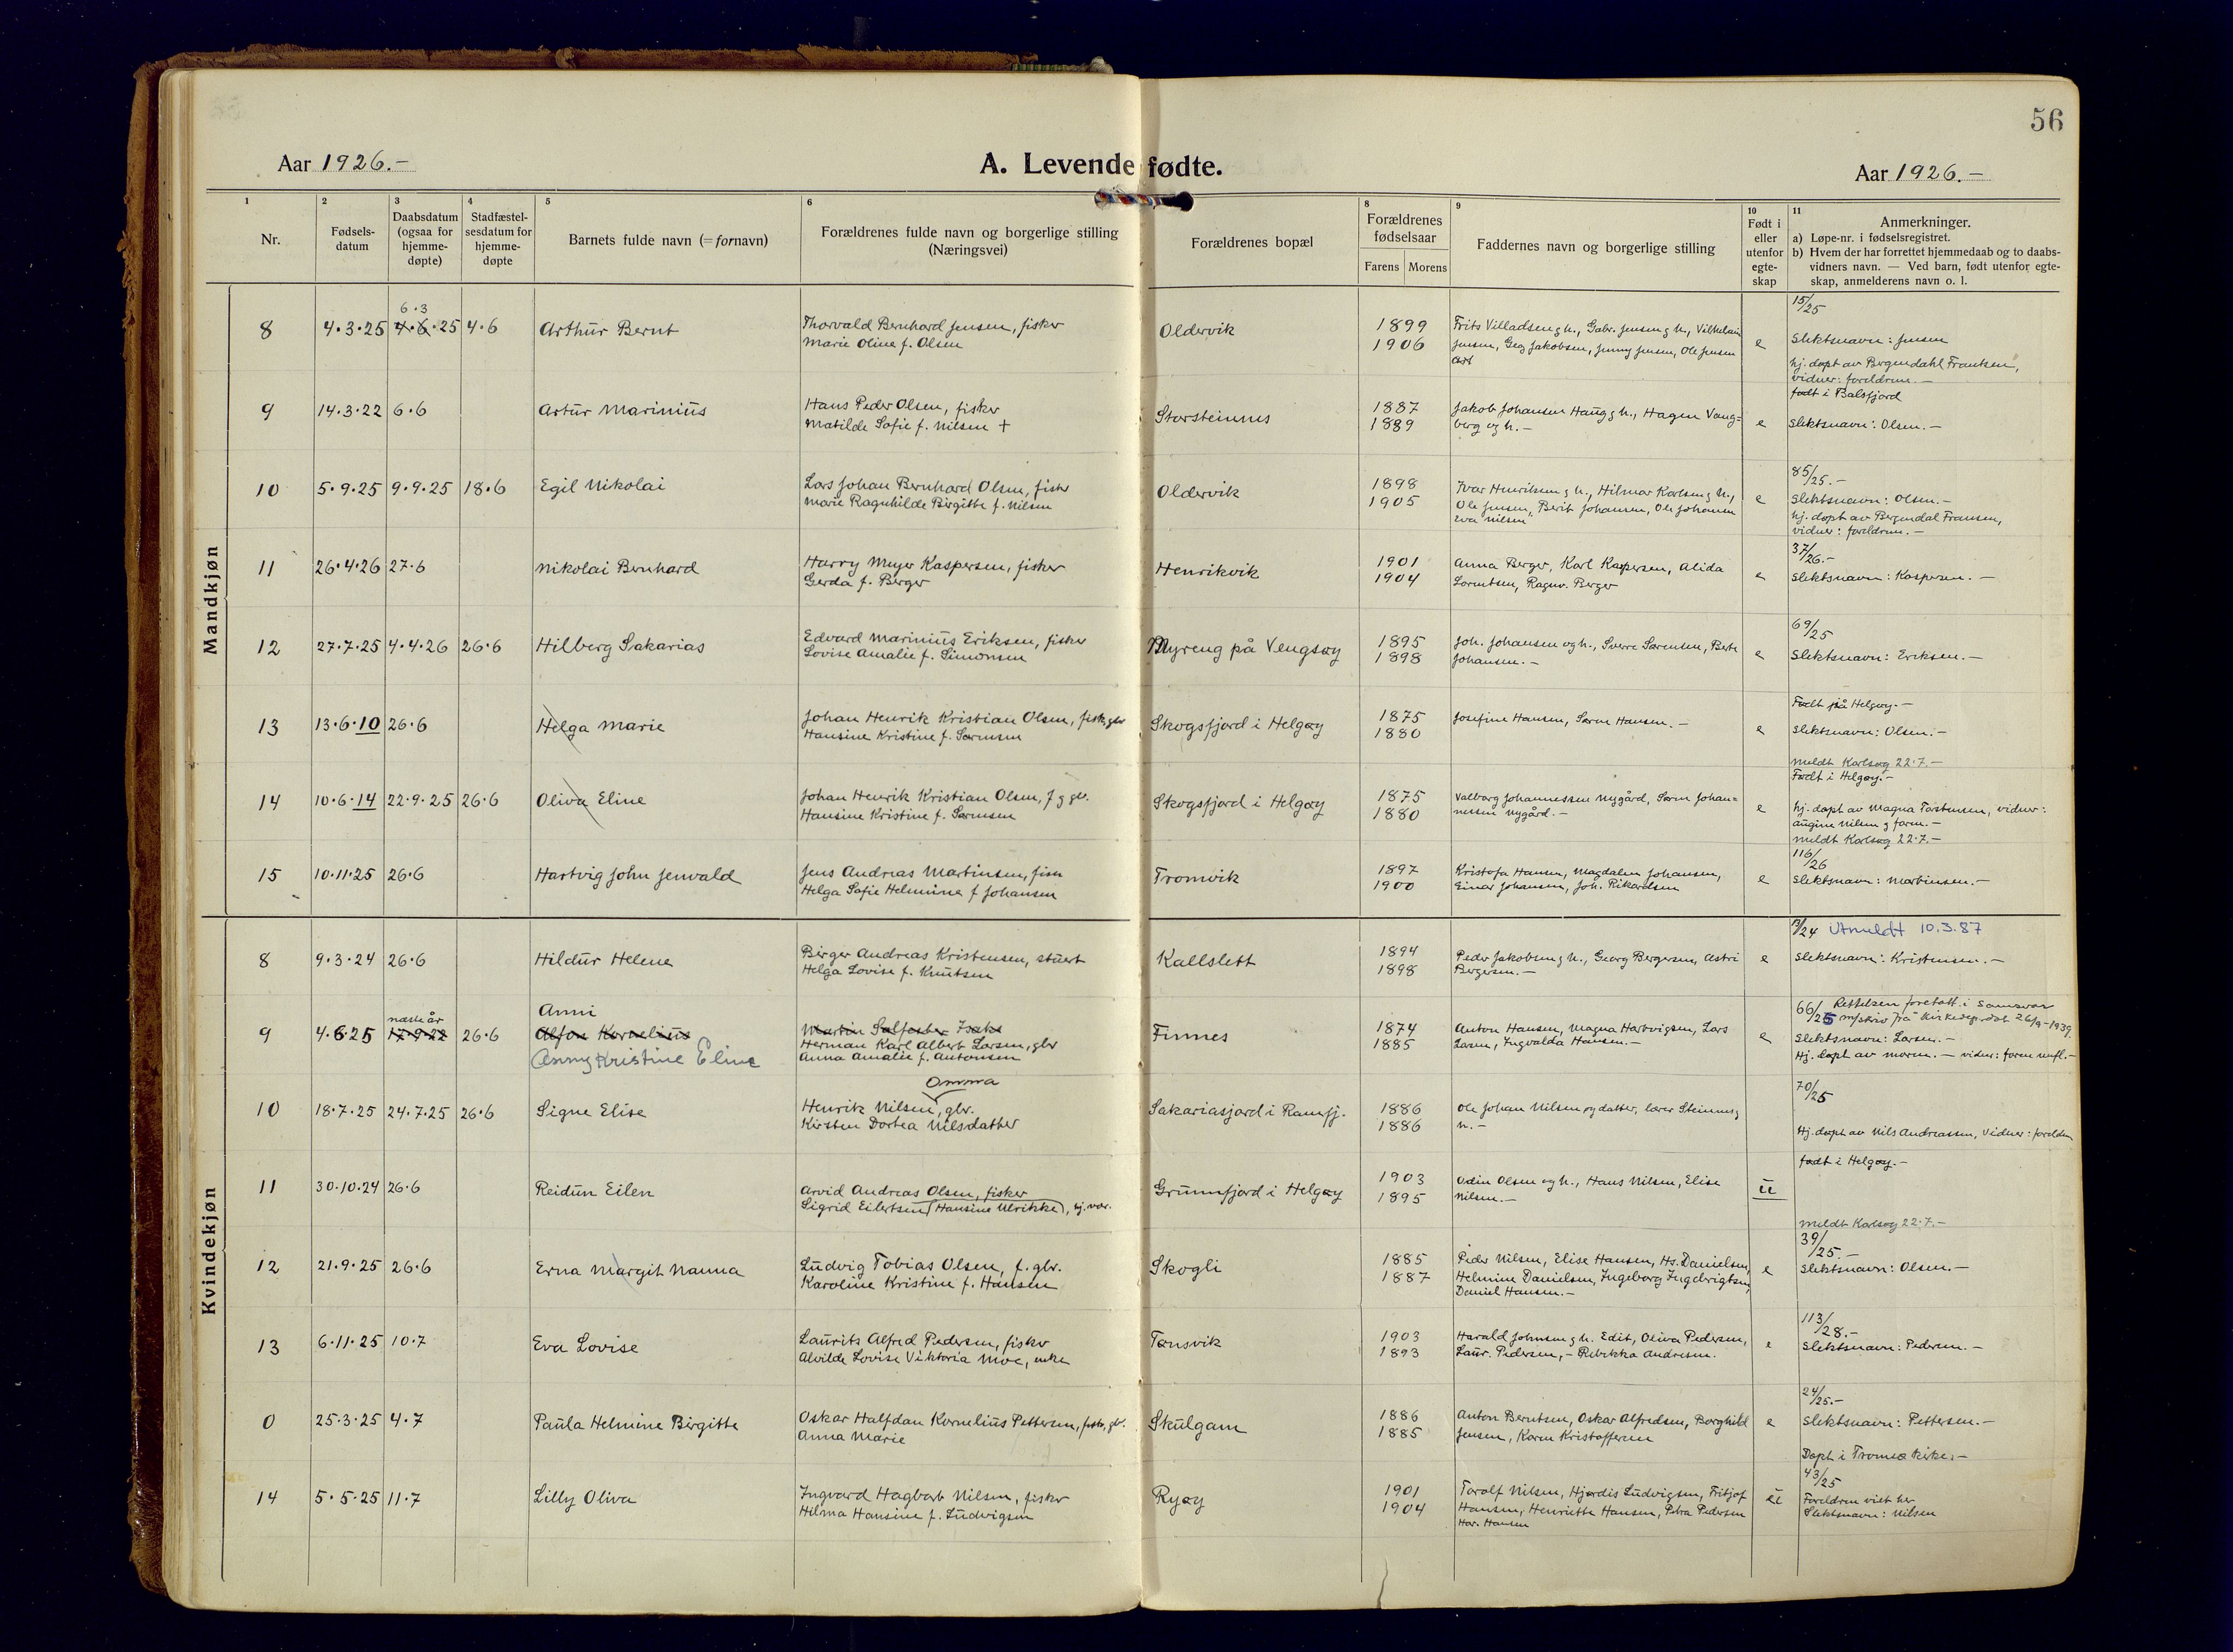 56
Aar 1926.-
A. Levende fødte.
Aar 1926.-
1 2 3 4 5 6 8 9 10 11
Nr.
Fødsels-
datum
Daabsdatum
(ogsaa for
hjemme-
døpte)
Stadfæstel-
sesdatum for
hjemme-
døpte
Barnets fulde navn (= fornavn)
Forældrenes fulde navn og borgerlige stilling
(Næringsvei)
Forældrenes bopæl
Forældrenes
fødselsaar
Farens Morens
Faddernes navn og borgerlige stilling
Født i
eller
utenfor
egte-
skap
Anmerkninger.
a) Løpe-nr. i fødselsregistret.
b) Hvem der har forrettet hjemmedaab og to daabs-
vidners navn. — Ved barn, født utenfor egte-
skap, anmelderens navn o. l.
Mandkjøn
8 4.3.25 6.3 4.6.25 4.6 Arthur Bernt
Thorvald Bernhard Jensen, fisker
Marie Oline f. Olsen
Oldervik
1899
1906
Frits Villadsen g h., Gabr. Jensen g h., Vilhelm
Jensen, Geog Jakobsen, Jenny Jensen, Ole Jensen
e
15/25
Slektsnavn: Jensen
hj. døpt av Bergendahl Frantsen,
vidner: foreldrene.-
9 14.3.22 6.6 Artur Marinius
Hans Peder Olsen, fisker
Matilde Sofie f. Nilsen +
Storsteinnes
1887
1889
Jakob Johansen Haug g h., Hagen Vang=
berg og h.-
e
født i Balsfjord
Slektsnavn: Olsen.-
10 5.9.25 9.9.25 18.6 Egil Nikolai
Lars Johan Bernhard Olsen, fisker
Marie Ragnhilde Birgitte f. Nilsen
Oldervik
1898
1905
Ivar Henriksen g h., Hilmar Karlsen g h.,
Ole Jensen, Berit Johansen, Ole Johansen
Eva Nilsen
e
85/25.-
Slektsnavn: Olsen.-
hj. døpt av Bergendal Fransen,
vidner: foreldrene.-
11 26.4.26 27.6 Nikolai Bernhard
Harry Meyer Kaspersen, fisker
Gerda f. Berger
Henrikvik
1901
1904
Anna Berger, Karl Kaspersen, Alida
Lorentsen, Ragnv. Berger
e
37/26.-
Slektsnavn: Kaspersen.-
12 27.7.25 4.4.26 26.6 Hilberg Sakarias
Edvard Marinius Eriksen, fisker
Lovise Amalie f. Simonsen
Myreng på Vengsøy
1895
1898
Joh. Johansen og h., Sverre Sørensen, Berte
Johansen.-
e
69/25
Slektsnavn: Eriksen.-
13 13.6.10 26.6 Helga Marie
Johan Henrik Kristian Olsen, fisk, gbr
Hansine Kristine f. Sørensen
Skogsfjord i Helgøy
1875
1880
Josefine Hansen, Søren Hansen.-
e
Født på Helgøy.-
Slektsnavn: Olsen.-
meldt Karlsøy 22.7.-
14 10.6.14 22.9.25 26.6 Oliva Eline
Johan Henrik Kristian Olsen, f g gbr.
Hansine Kristine f. Sørensen
Skogsfjord i Helgøy
1875
1880
Valborg Johannessen Nygård, Søren Johan=
nessen Nygård.-
e
Født i Helgøy.-
hj. døpt av Magna Torstensen, vidner:
Augine Nilsen g faren.-
meldt Karlsøy 22.7.-
15 10.11.25 26.6 Hartvig John Jenvald
Jens Andreas Martinsen, fisk
Helga Sofie Helmine f Johansen
Tromvik
1897
1900
Kristofa Hansen, Magdalen Johansen,
Einar Johansen, Joh. Rikardsen
e
116/26
Slektsnavn: Martinsen.-
Kvindekjøn
8 9.3.24 26.6 Hildur Helene
Birger Andreas Kristensen, stuert
Helga Lovise f. Knutsen
Kallslett
1894
1898
Peder Jakobsen g h., Georg Bergersen, Astri
Bergersen.-
e
/24 Utmeldt 10.3.87
Slektsnavn: Kristensen.-
9 4.6.25 næste år 17.9.22 26.6
Anni
Alfon Kornelius
Anny Kristine Eline
Martin Salfester Isaks
Herman Karl Albert Larsen, gbr
Anna Amalie f. Antonsen
Finnes
1874
1885
Anton Hansen, Magna Hartvigsen, Lars
Larsen, Ingvalda Hansen.-
e
66/25 Rettelsen foretatt i samsvar
m/skriv frå Kirkedep. dat 26/9-1939
Slektsnavn: Larsen.-
Hj. døpt av moren.- vidner: faren
10 18.7.25 24.7.25 26.6 Signe Elise
Omma
Henrik Nilsen, gbr.
Kirsten Dortea Nilsdatter
Sakariasjord i Ramfj.
1886
1886
Ole Johan Nilsen og datter, lærer Steinnes g
h.-
70/25
Hj. døpt av Nils Andreassen, Vidner: foreldre
11 30.10.24 26.6 Reidun Eilen
Arvid Andreas Olsen, fisker
Sigrid Eilertsen (Hansine Ulrikke),
Grunnfjord i Helgøy
1903
1895
Odin Olsen og h., Hans Nilsen, Elise
Nilsen.-
u
født i Helgøy.-
meldt Karlsøy 22.7.-
12 21.9.25 26.6 Erna Margit Nanna
Ludvig Tobias Olsen, f. gbr.
Karoline Kristine f. Hansen
Skogli
1885
1887
Peder Nilsen, Elise Hansen, Hs. Danielsen,
Helmine Danielsen, Ingeborg Ingebrigtsen,
Daniel Hansen.-
e
39/25.-
Slektsnavn: Olsen.-
13 6.11.25 10.7 Eva Lovise
Laurits Alfred Pedersen, fisker
Alvilde Lovise Viktoria Moe, enke
Tønsvik
1903
1893
Harald Johnsen g h. Edit, Oliva Pedersen,
Laur. Pedersen,- Rebekka Andresen.
e
113/28.-
Slektsnavn: Pedersen.-
0 25.3.25 4.7 Paula Helmine Birgitte
Oskar Halfdan Kornelius Pettersen, fisker, gbr.
Anna Marie
Skulgam
1886
1885
Anton Berntsen, Oskar Alfredsen, Borghild
Jensen, Karen Kristoffersen
e
24/25.-
Slektsnavn: Pettersen.-
Døpt i Tromsø kirke.-
14 5.5.25 11.7 Lilly Oliva
Ingvard Hagbart Nilsen, fisker
Hilma Hansine f. Ludvigsen
Ryøy
1901
1904
Torolf Nilsen, Hjørdis Ludvigsen, Fritjof
Hansen, Henriette Hansen, Petra Pedersen
Har. Hansen
43/25
Foreldren viet her
Slektsnavn: Nilsen